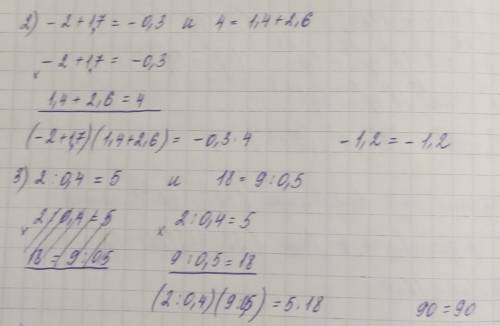 2) -2+1,7 = -0,3 и 4 = 1,4+2,6
x -2+1,7 = -0,3
1,4+2,6 = 4
(-2+1,7)(1,4+2,6) = -0,3·4 -1,2 = -1,2
3) 2:0,4 = 5 и 18 = 9:0,5
x 2:0,4 = 5 x 2:0,4 = 5
18 = 9:0,5 9:0,5 = 18
(2:0,4)(9:0,5) = 5·18 90 = 90